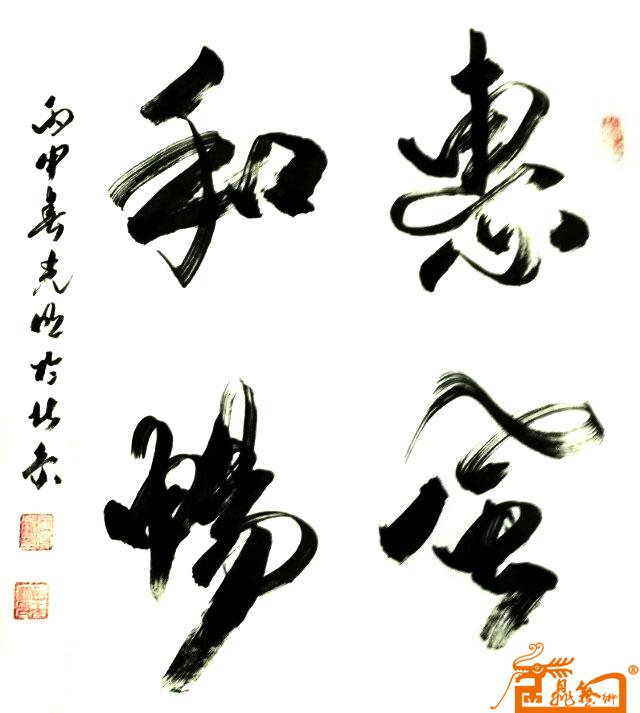 惠風
和暢
丙申春光明於北京